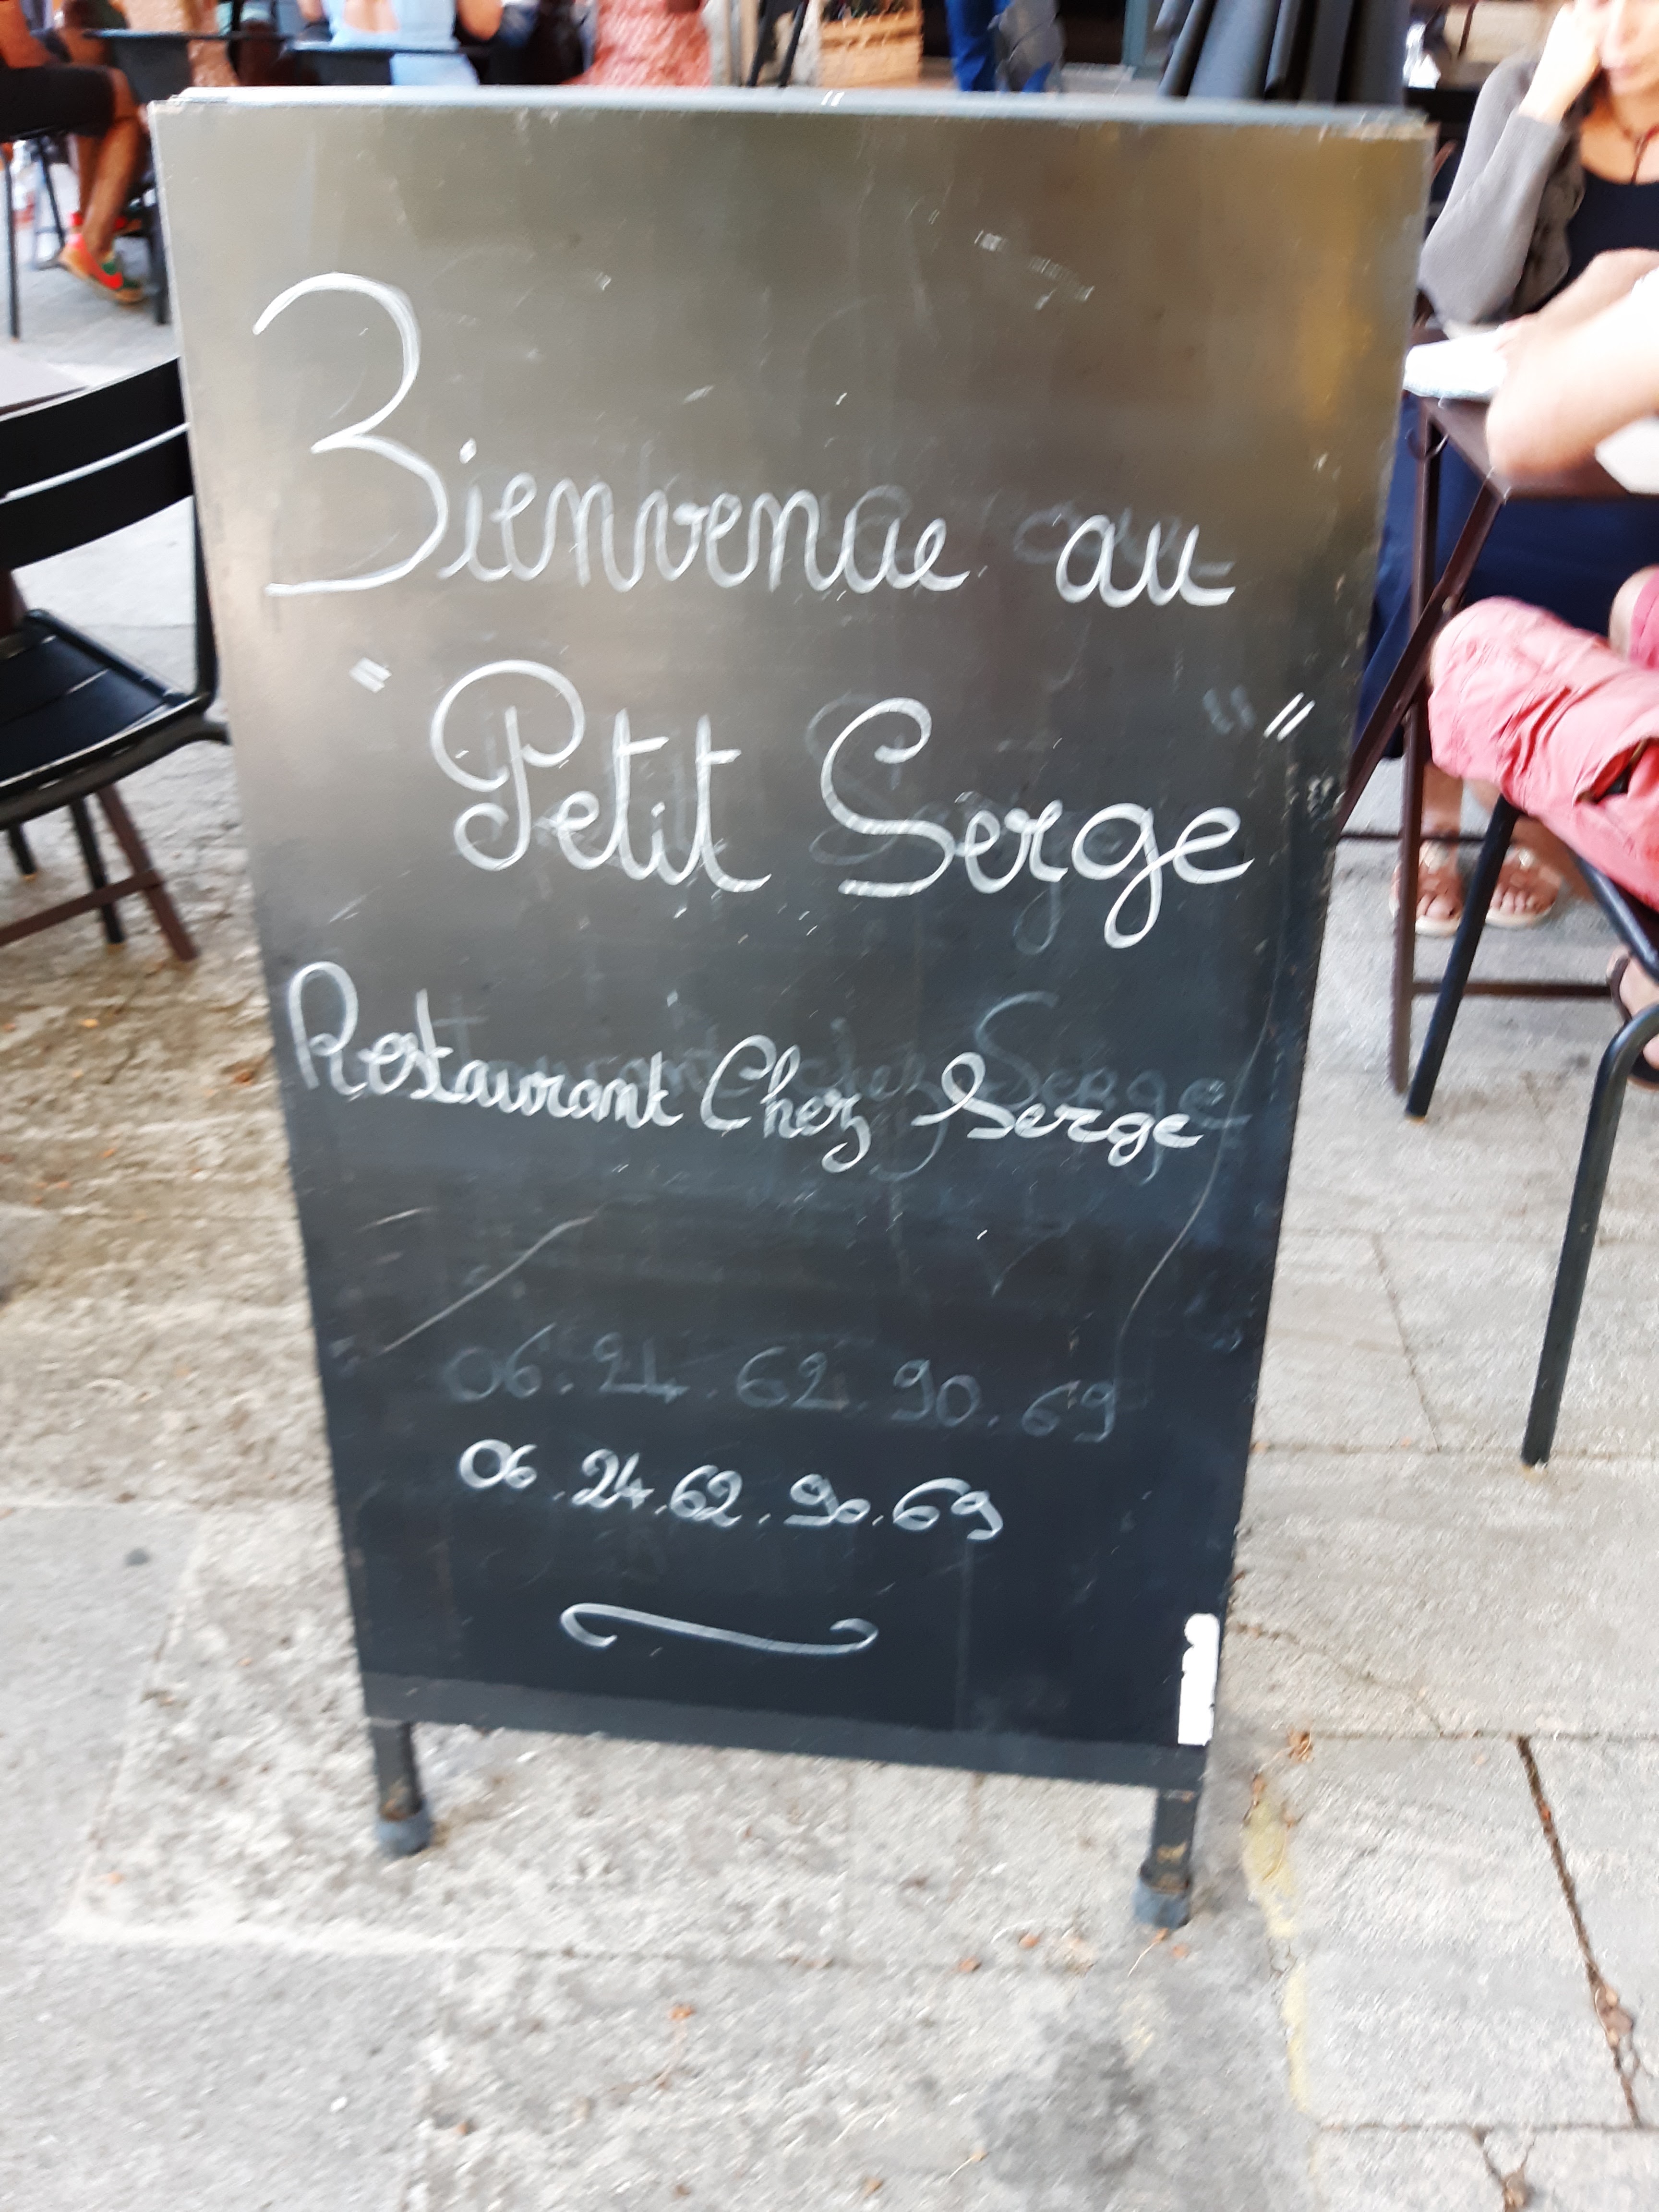 Bienvenue au
"Petit Serge"
Restaurant Chez Serge
06.24.62.90.69
06.24.62.90.69